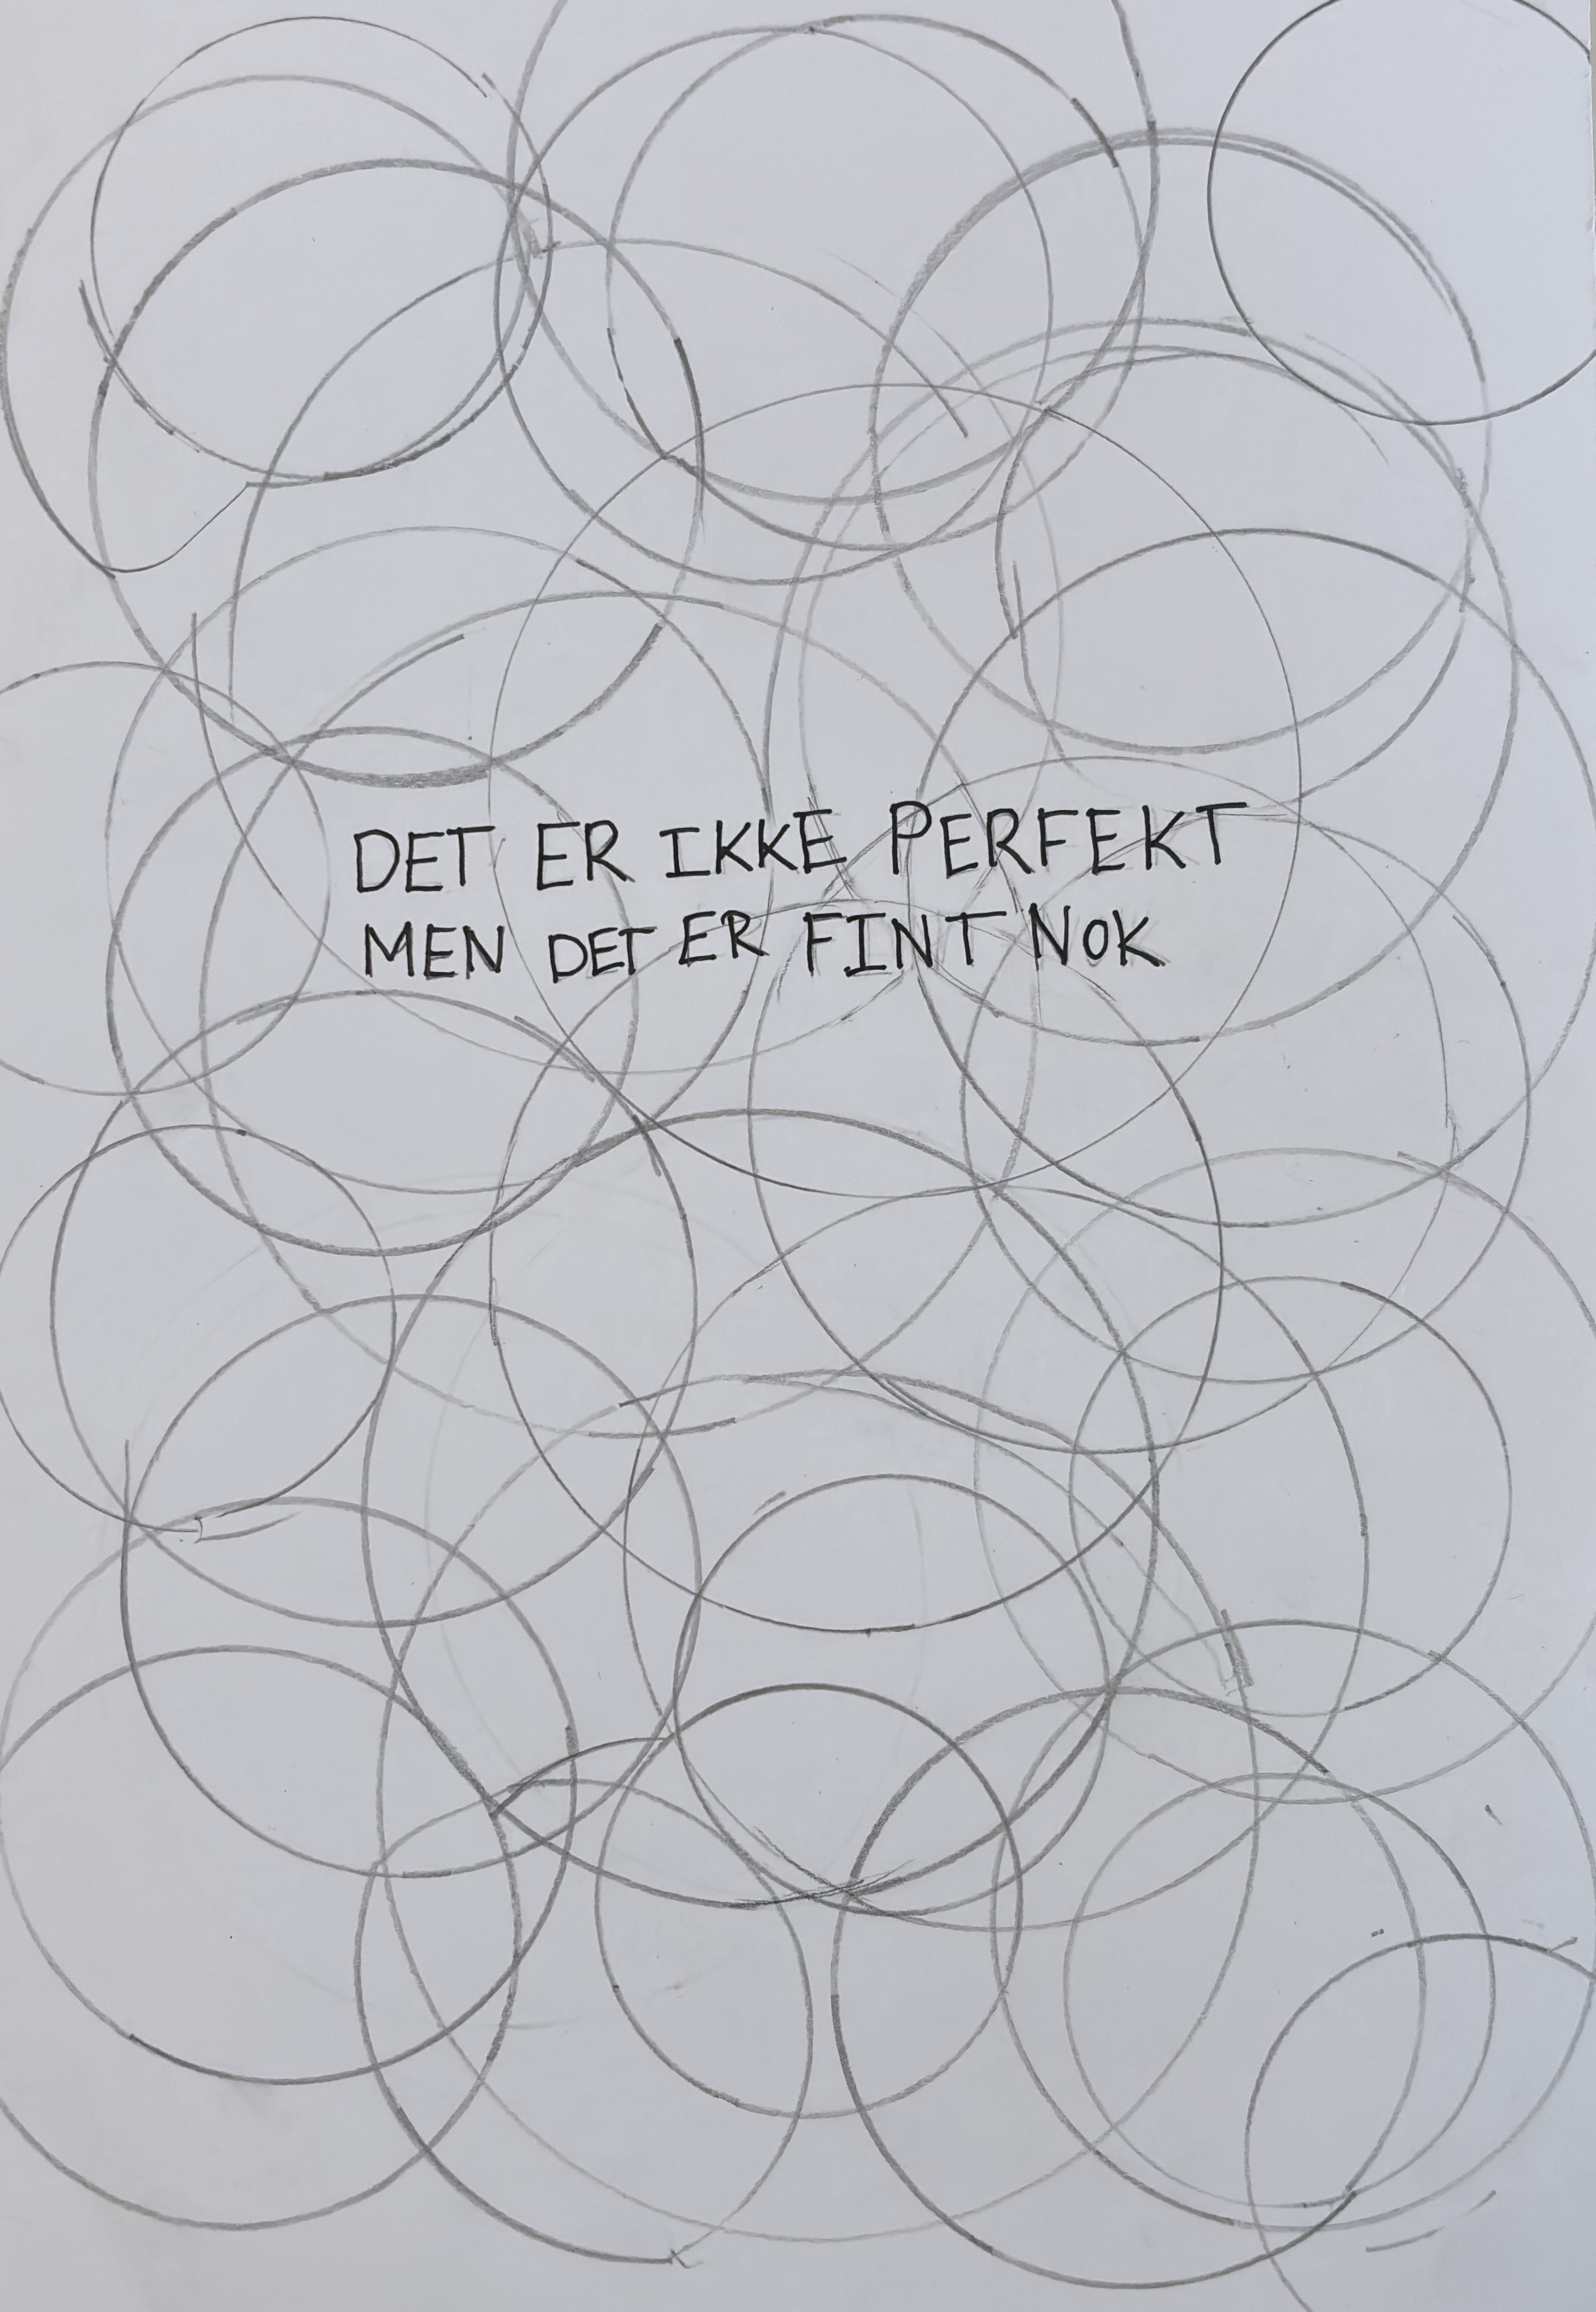 DET ER IKKE PERFEKT
MEN DET ER FINT NOK